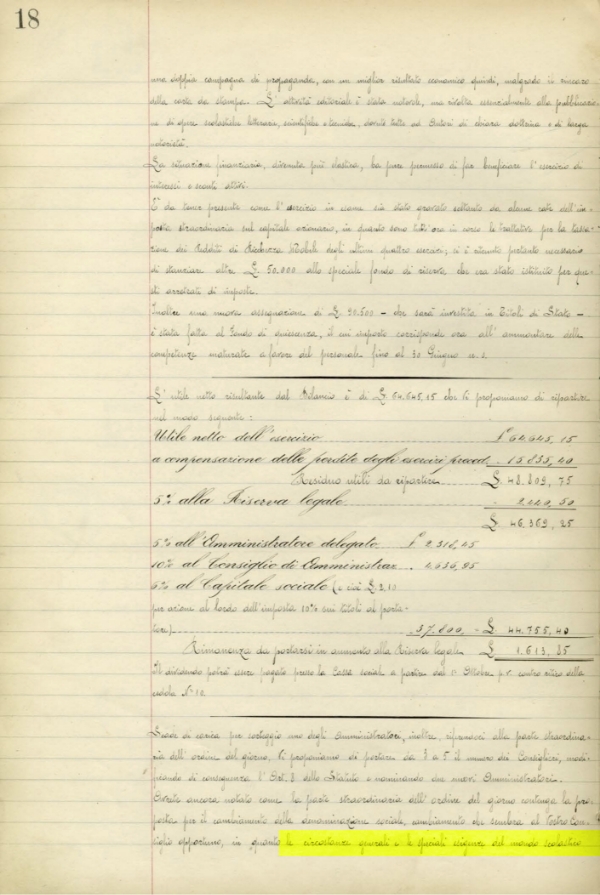 18
una doppia campagna di propaganda, con un miglior risultato economico quindi, malgrado il rincaro
della carta da stampa. L'attività editoriale è stata notevole, ma rivolta essenzialmente alla pubblicazio-
ne di opere scolastiche letterarie, scientifiche e tecniche, dovute tutte ad Autori di chiara dottrina e di larga
notorietà.
La situazione finanziaria, divenuta più elastica, ha pure permesso di far beneficiare l'esercizio di
interessi e sconti attivi.
È da tener presente come l'esercizio in esame sia stato gravato soltanto da alcune rate dell'im-
posta straordinaria sul capitale azionario, in quanto sono tutt'ora in corso le trattative per la tassa-
zione dei Redditi di Ricchezza Mobile degli ultimi quattro esercizi; si è ritenuto pertanto necessario
di stanziare altre £. 50.000 allo speciale fondo di riserva che era stato istituito per que-
sti arretrati di imposte.
Inoltre una nuova assegnazione di £. 90.500 - che sarà investita in Titoli di Stato -
è stata fatta al Fondo di quiescenza, il cui importo corrisponde ora all'ammontare delle
competenze maturate a favore del personale fino al 30 Giugno u.s.
L'utile netto risultante dal Bilancio è di £. 64.645,15 che Vi proponiamo di ripartire
nel modo seguente:
Utile netto dell'esercizio £ 64.645, 15
a compensazione delle perdite degli esercizi preced. . 15.835, 40
Residuo utili da ripartire £. 48.809, 75
5% alla Riserva legale . 2.440, 50
£. 46.369, 25
5% all'Amministratore delegato £ 2.318,45
10% al Consiglio di Amministraz. . 4.636,95
6% al Capitale sociale (e cioè £. 2,10
per azione al lordo dell'imposta 10% sui titoli al porta-
tore) 37.800,- £. 44.755, 40
Rimanenza da portarsi in aumento alla Riserva legale £ 1.613, 85
Il dividendo potrà esser pagato presso la Cassa sociale a partire dal 1° Ottobre p.v. contro ritiro della
cedola N° 10.
Scade di carica per sorteggio uno degli Amministratori, inoltre, riferendoci alla parte straordina-
ria dell'ordine del giorno, Vi proponiamo di portare da 3 a 5 il numero dei Consiglieri, modi-
ficando di conseguenza l'Art. 8 dello Statuto e nominando due nuovi Amministratori.
Avrete ancora notato come la parte straordinaria dell'ordine del giorno contenga la pro-
posta per il cambiamento della denominazione sociale, cambiamento che sembra al Vostro Con-
siglio opportuno, in quanto le circostanze generali e le speciali esigenze del mondo scolastico